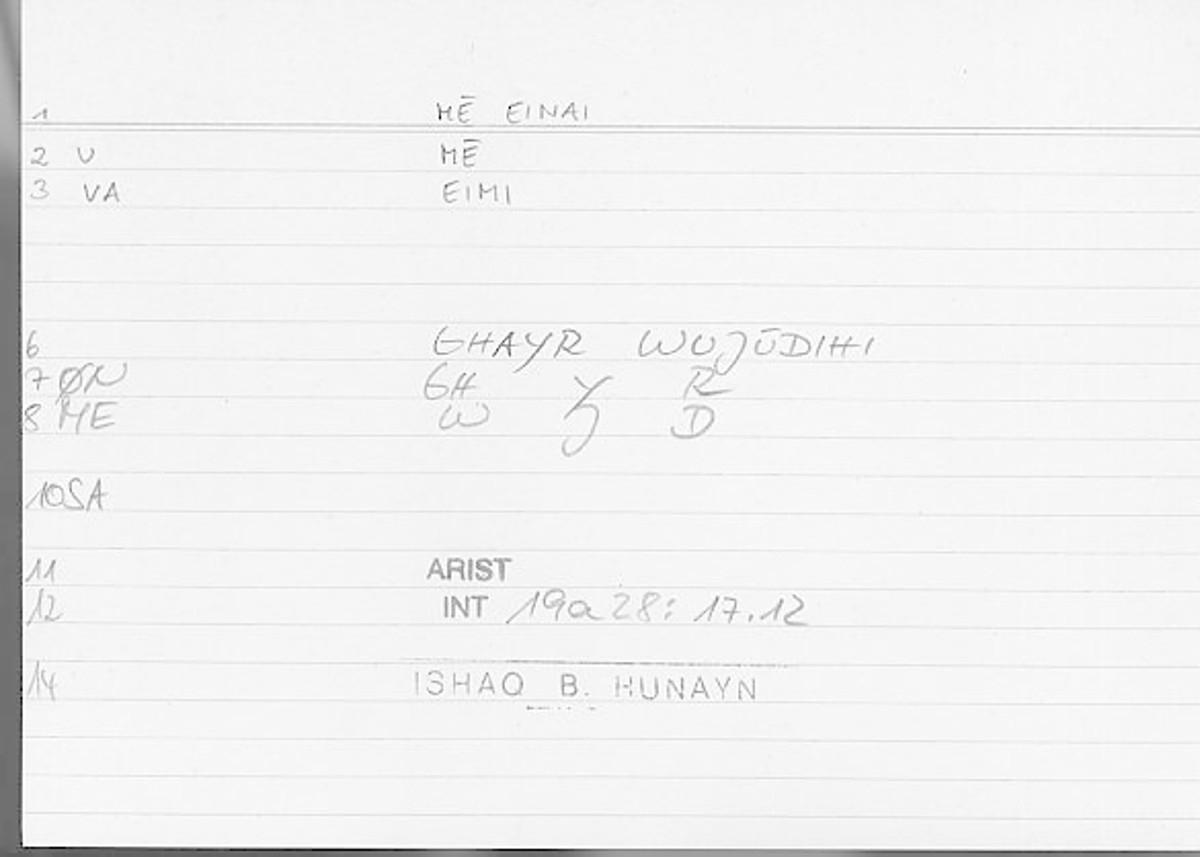 1 MĒ EINAI
2 V MĒ
3 VA EIMI
6 GHAYR WUJŪDIHI
7 ØN GH Y R
8 ME W J D
10 SA
11 ARIST
12 INT 19a28: 17.12
14 ISHAQ B. HUNAYN